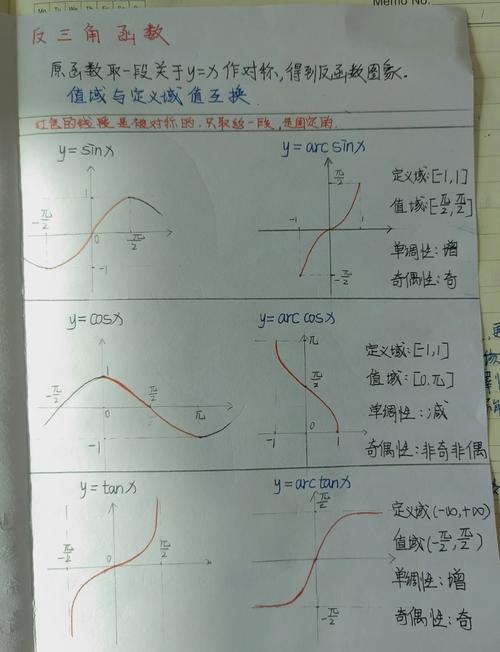 Memo No.
反三角函数
原函数取一段关于y=x作对称,得到反函数图象。
值域与定义域值互换
红色的线段是被对称的,只取这一段,是固定的.
y=sinx
1
-π/2
0
π/2
-1
y=arcsinx
π/2
-1
1
-π/2
定义域:[-1,1]
值域:[-π/2,π/2]
单调性:增
奇偶性:奇
y=cosx
1
-π/2
0
π/2
π
-1
y=arccosx
π
π/2
-1
0
1
定义域:[-1,1]
值域:[0,π]
单调性:减
奇偶性:非奇非偶
y=tanx
-π/2
0
π/2
y=arctanx
π/2
-π/2
定义域(-∞,+∞)
值域(-π/2,π/2)
单调性:增
奇偶性:奇